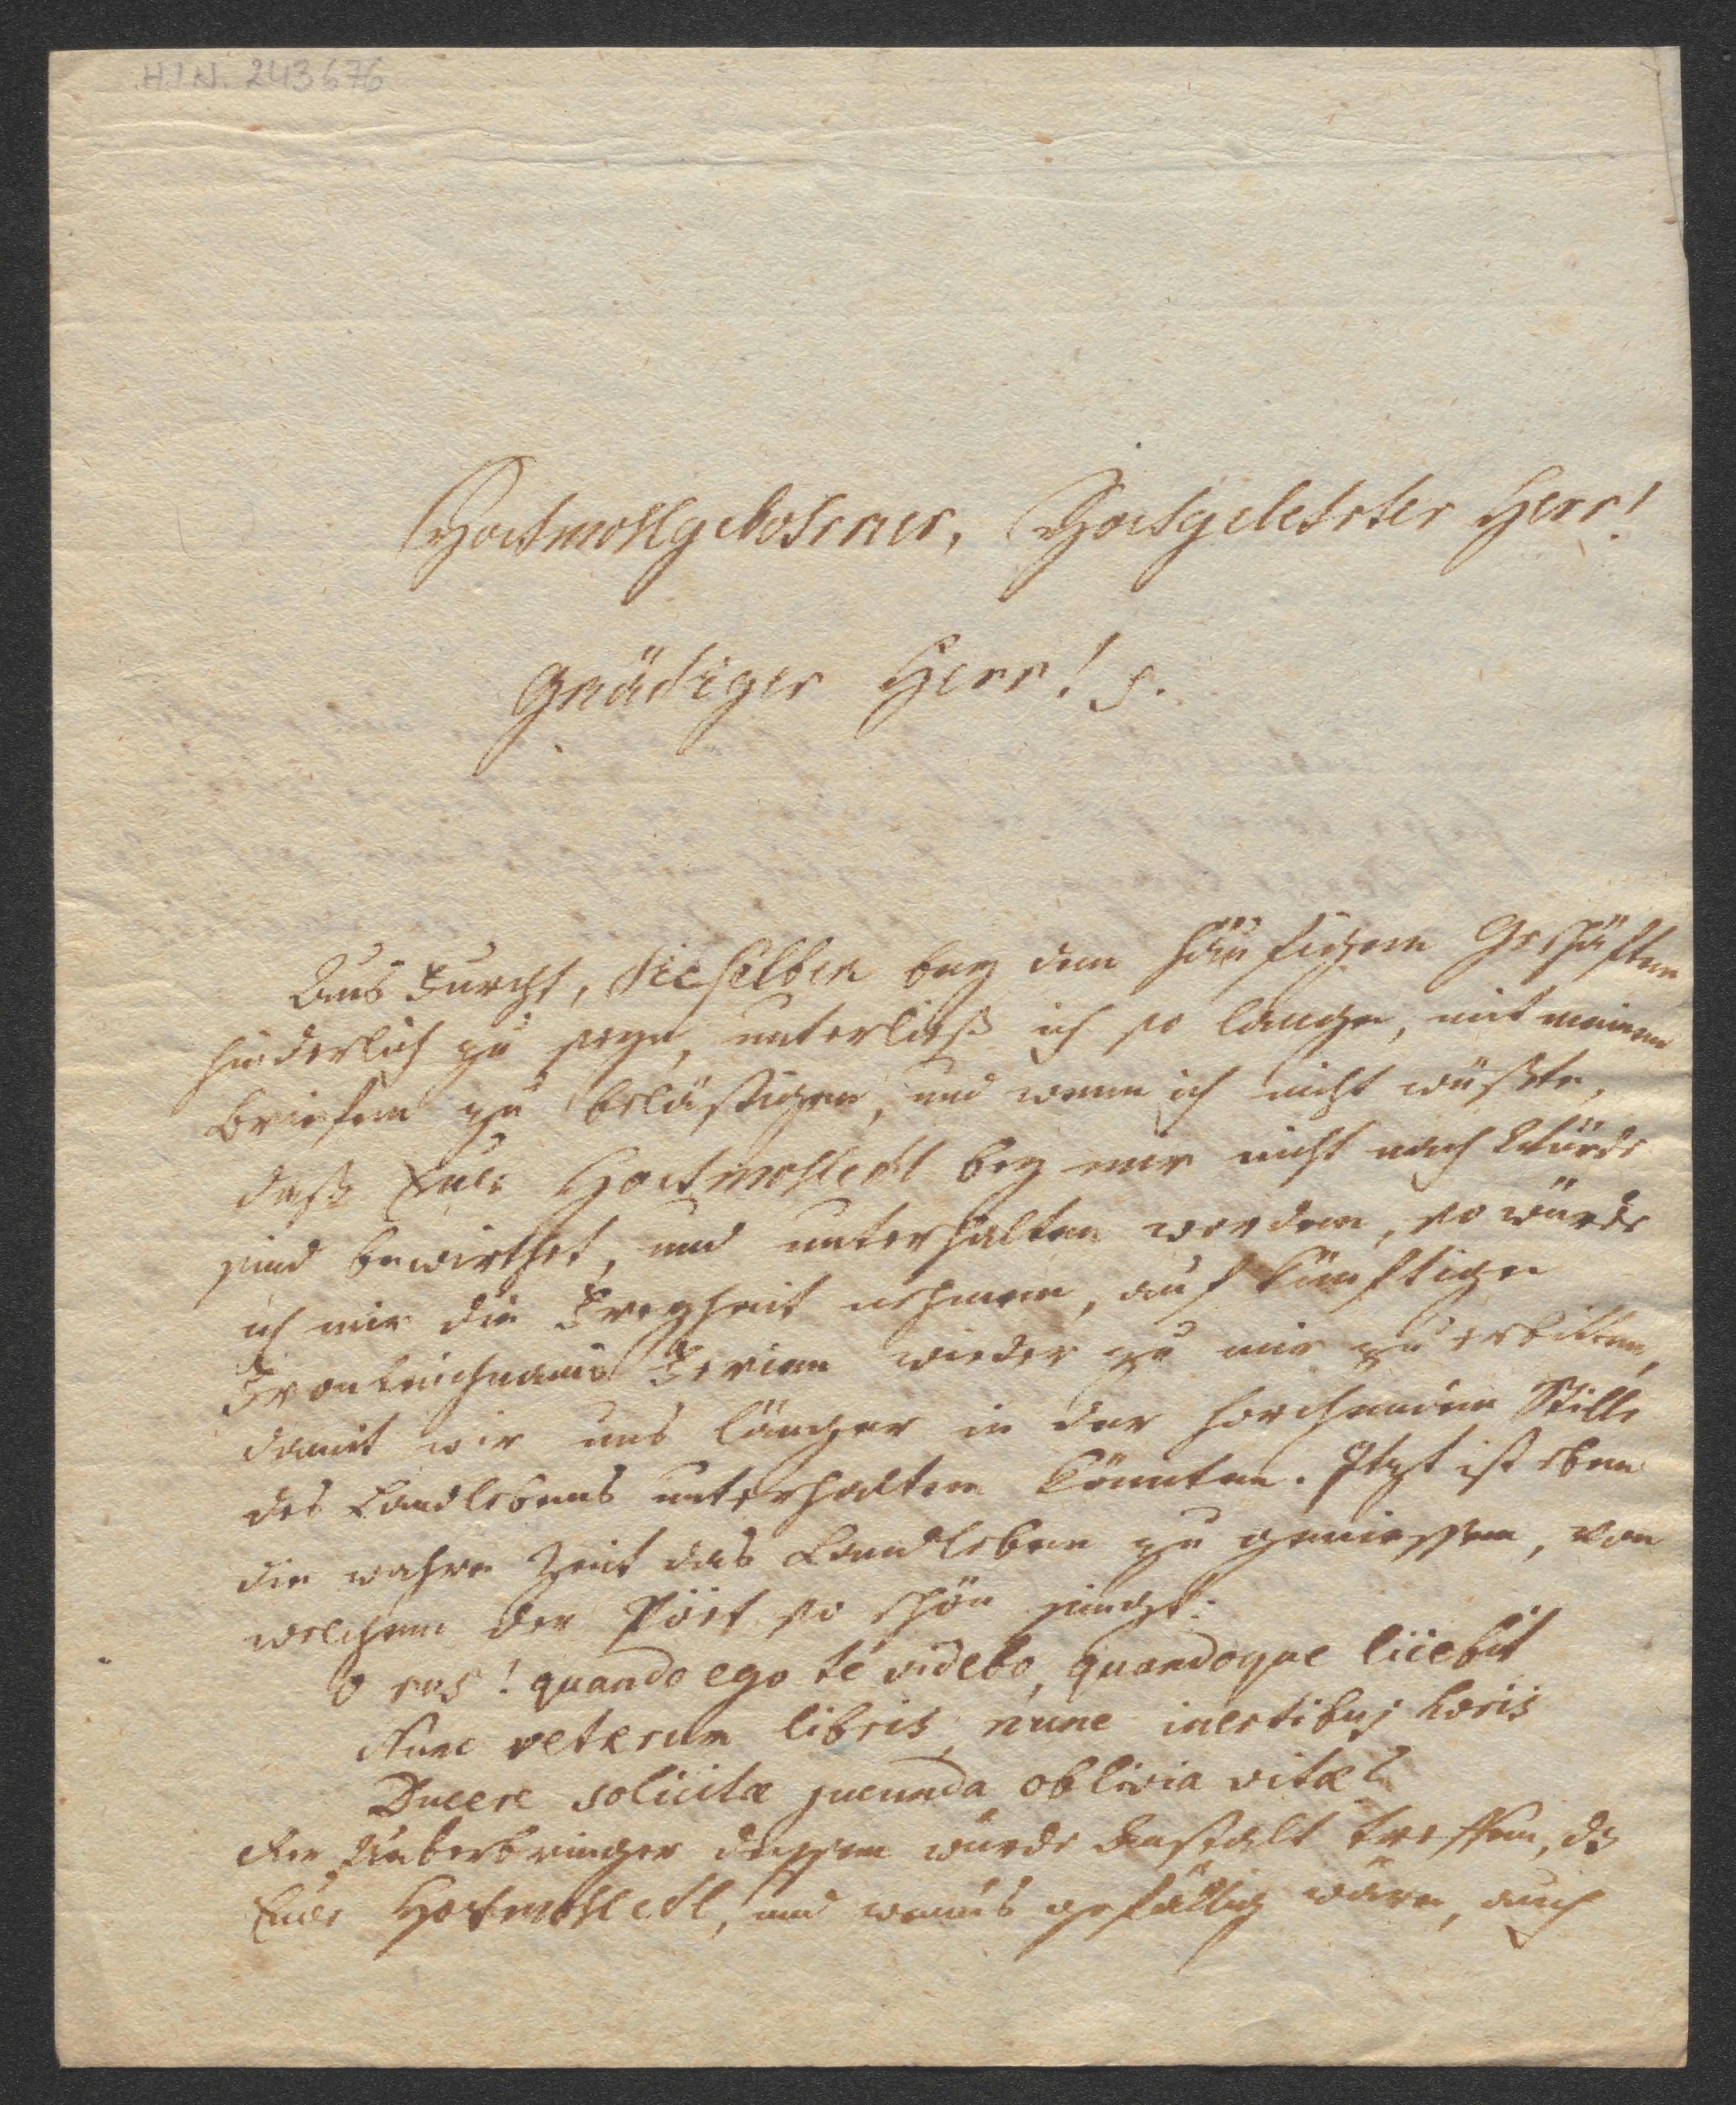 H.I.N. 243676
Hochwohlgebohrner, Hochgelehrter Herr!
Gnädiger Herr!
Aus Furcht, dieselben bey den häufigen Geschäften
hinderlich zu seyn, unterließ ich so lange, mit meinen
Briefen zu belästigen, und wenn ich nicht wüßte,
daß Euer Hochwohledl bey mir nicht nach Würde
sind bewirthet, und unterhalten worden, so würde
ich mir die Freyheit nehmen, auf künftige
Fronleichnams Ferien wieder zu mir zu erbitten,
damit wir uns länger in der horchenden Stille
des Landlebens unterhalten könnten. Itzt ist eben
die wahre Zeit das Landleben zu geniessen, von
welchem der Pöet so schön singt:
O rus! quando ego te videbo, quandoque licebit
Nunc veterum libris, nunc inertibus horis
Ducere solicitæ jucunda oblivia vitæ?
Der Ueberbringer dessen würde Anstalt treffen, dß
Euer Hochwohledl, und wenns gefällig wäre, auch